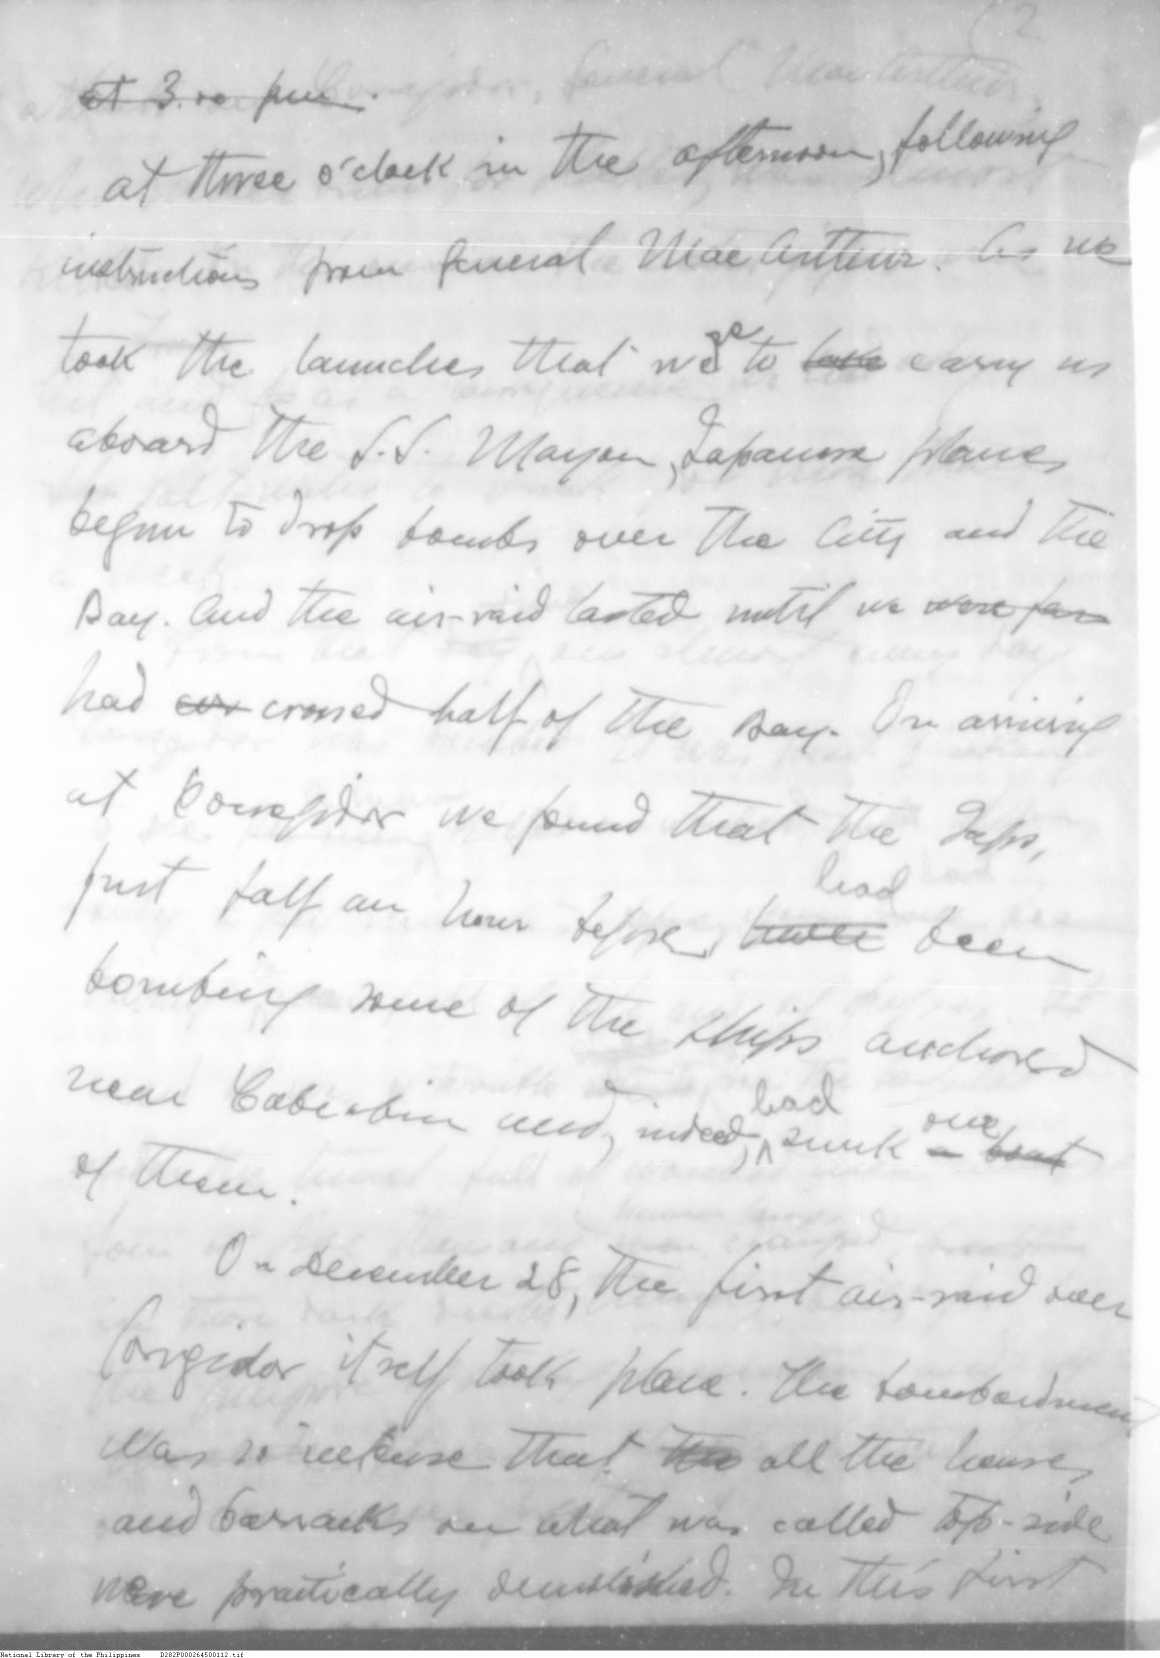 at 3.00 pm.
at three o'clock in the afternoon, following
instructions from General MacArthur. As we
took the launches that were to take carry us
aboard the S.S. Mayon, Japanese planes
begun to drop bombs over the City and the
Bay. And the air-raid lasted until we were far
had cro crossed half of the Bay. On arriving
at Corregidor we found that the Japs,
just half an hour before, have had been
bombing some of the ships anchored
near Cabcabin and, indeed, had sunk a boat one
of them.
On December 28, the first air-raid over
Corrigidor itself took place. The bombardment
was so intense that the all the houses
and barracks on what was called Top-side
were practically demolished. In this first
National Library of the Philippines D282P000264500112.tif